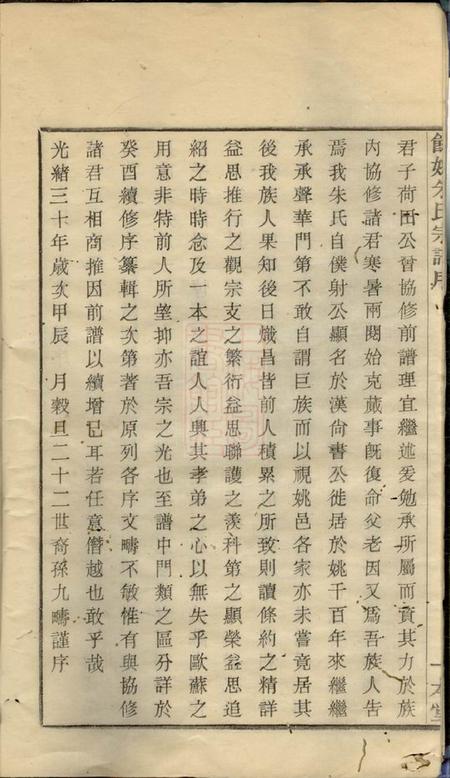 君子荷田公曾協修前譜理宜繼述爰勉承所屬而貢其力於族
內協修諸君寒暑兩閱始克蕆事旣復命父老因又爲吾族人告
焉我朱氏自僕射公顯名於漢尙書公徙居於姚千百年來繼繼
承承聲華門第不敢自謂巨族而以視姚邑各家亦未嘗竟居其
後我族人果知後日熾昌皆前人積累之所致則讀條約之精詳
益思推行之觀宗支之繁衍益思聯護之羨科第之顯榮益思追
紹之時時念及一本之誼人人興其孝弟之心以無失乎歐蘇之
用意非特前人所望抑亦吾宗之光也至譜中門類之區分詳於
癸酉續修序纂輯之次第著於原列各序文疇不敏惟有與協修
諸君互相商推因前譜以續增已耳若任意僭越也敢乎哉
光緒三十年歲次甲辰 月穀旦二十二世裔孫九疇謹序